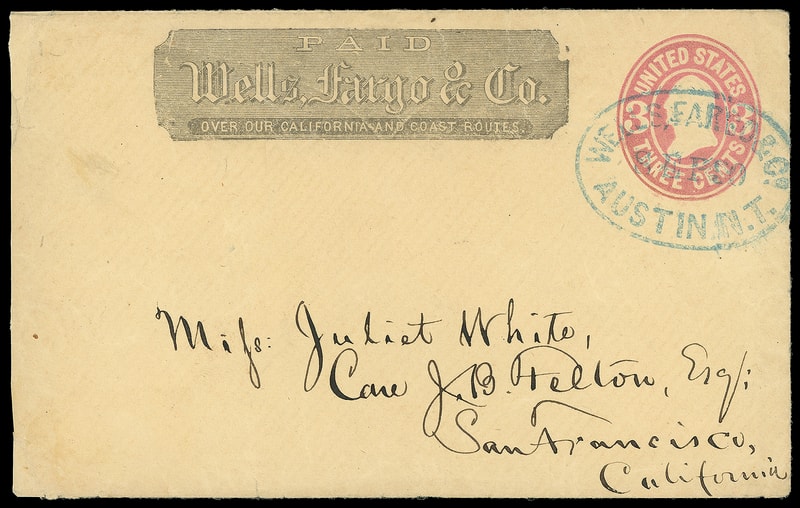 PAID
Wells, Fargo & Co.
OVER OUR CALIFORNIA AND COAST ROUTES.
UNITED STATES
3 3
THREE CENTS
WELLS, FARGO & Co.
AUSTIN, N.T.
Miſs: Juliet White,
Care J. B. Felton, Esq:
San Francisco,
California